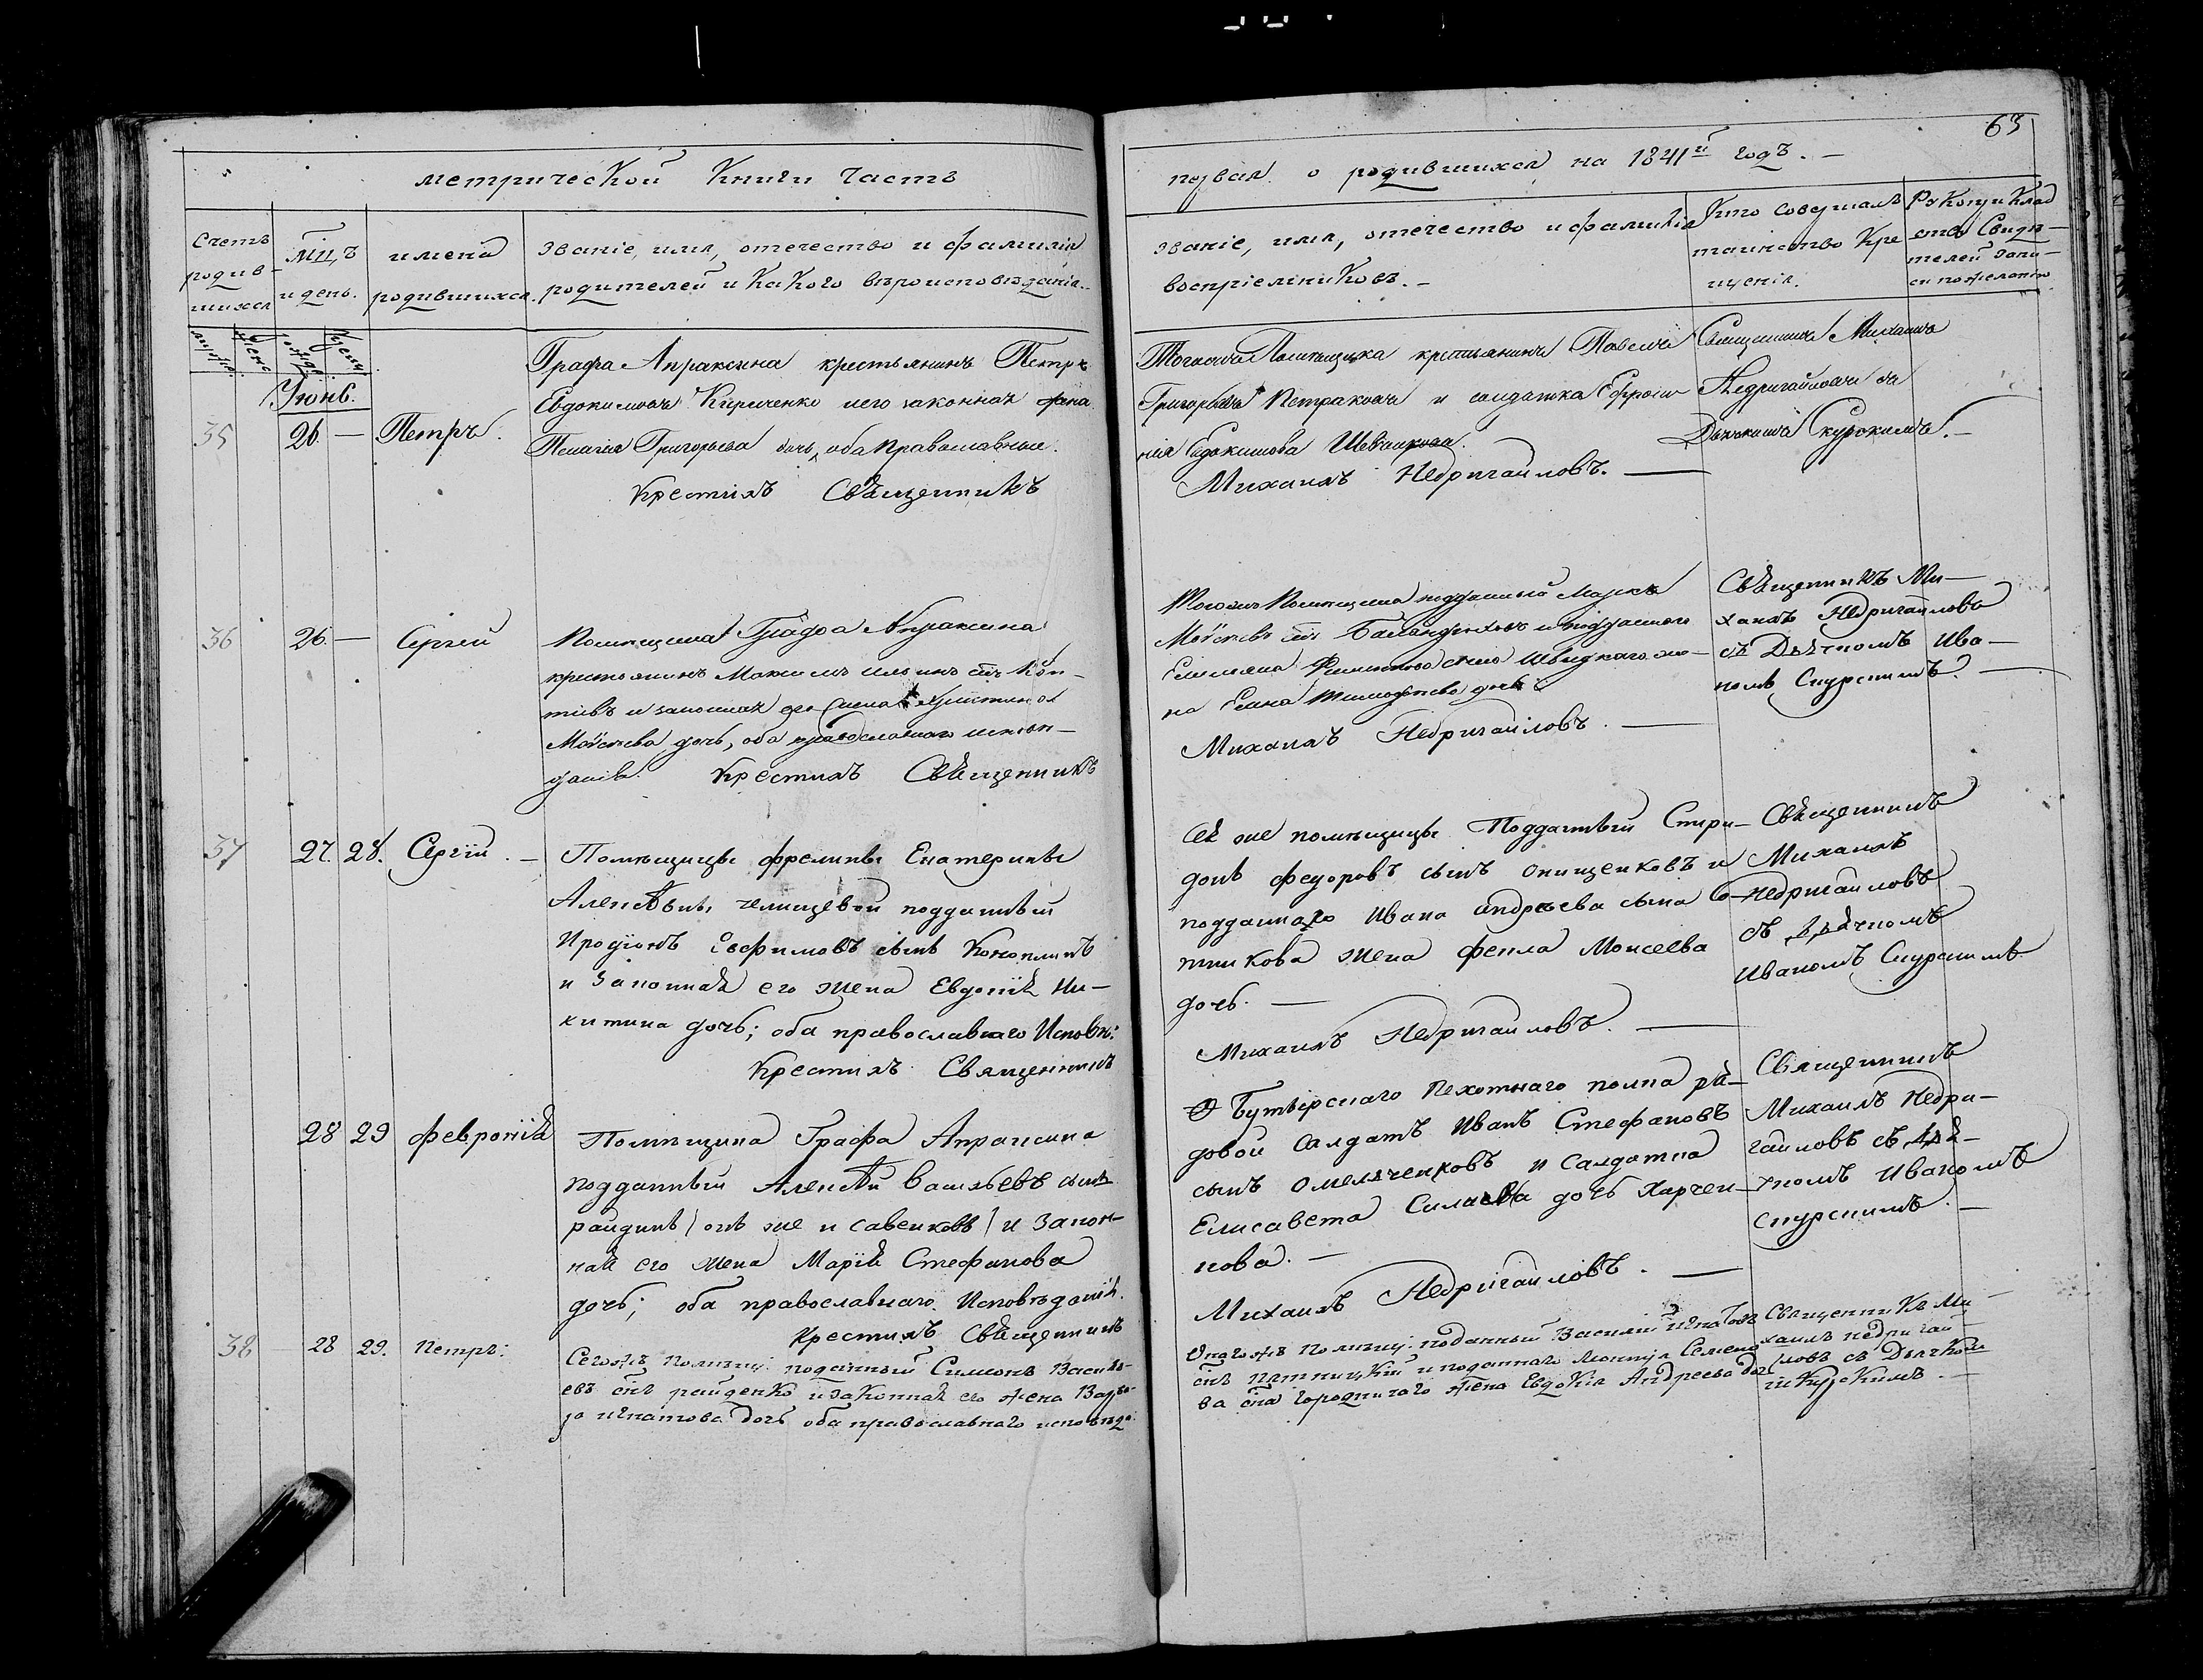 63
метрической Книги Часть
первая о родившихся на 1841й годъ. –
Счетъ
родив-
шихся
Мцъ
и день.
имена
родившихся.
Званіе, имя, отечество и фамилія
родителей и Какого вѣроисповѣданія.
Званіе, имя, отечество и фамилія
воспріемниковъ. –
Кто совершалъ
таинство Кре
щенія.
РуКоприКлад
ство Свидѣ-
телей запи-
си по желанію
Іюнь.
35
26. –
Петръ.
Графа Апраксина крестьянинъ Петръ
Евдокимовъ Кириченко и его законная жена
Пелагія Григорьева дочь, оба православные.
Крестилъ Священникъ
Тогоже Помѣщика крестьянинъ Павелъ
Григорьевъ Петраковъ и солдатка Ефроси
нія Евдокимова Шевчикова.
Михаилъ Недригайловъ. –
Священникъ Михаилъ
Недригайловъ съ
Дьячкомъ Скурскимъ. –
36
26. –
Сергей
Помѣщика Графа Апраксина
крестьянинъ Максимъ сынъ
и законная его жена Христина
Моисеева дочь, оба православнаго исповѣ-
данія. Крестилъ Священникъ
Тогоже Помѣщика подданный Марко
Моисеевъ снъ и подданного
Емельяна Филипова сына Швидкаго же-
на Елена Тимофеева дочь
Михаилъ Недригайловъ. –
Священникъ Ми-
хаилъ Недригайловъ
съ Дьячкомъ Ива-
номъ Скурскимъ. –
37
27. 28.
Сергій. –
Помѣщицы фрелины Екатерины
Алексѣвны Челищевой подданный
Иродіонъ Евфимовъ сынъ Коноплинъ
и Законная его жена Евдокія Ни-
китина дочь; оба православнаго Исповѣ:
Крестилъ Священникъ
Сей же помѣщицы Подданный Спири-
донъ федоровъ сынъ Онищенковъ и
подданнаго Ивана Андреева сына Со-
тникова жена фекла Моисеева
дочь. –
Михаилъ Недригайловъ. –
Священникъ
Михаилъ
Недригайловъ
съ Дьячкомъ
Иваномъ Скурскимъ
28 29
февронія
Помѣщика Графа Апраксина
подданный Алексѣй Васильевъ сынъ
райдинъ (онъ же и савенковъ) и Закон-
ная его жена Марія Стефанова
дочь; оба православнаго Исповѣданія.
Крестилъ Священникъ
Бутырскаго Пехотнаго полка ря-
довой Салдатъ Иванъ Стефановъ
сынъ Омельченковъ и Салдатка
Елисавета Силаева дочь Харчен-
кова. –
Михаилъ Недригайловъ. –
Священникъ
Михаилъ Недри-
гайловъ съ Дья-
чкомъ Иваномъ
Скурскимъ. –
38
28 29.
Петръ:
Сегожъ Помѣщи: поданный Симонъ Василь-
евъ снъ райденко и законная его жена Варва-
ра игнатова дочь оба православнаго исповѣда:
Онагожъ помѣщи: поданный Василій игнатовъ
снъ пятницкій и поданнаго Семено
ва сна городничаго жена ЕвдоКія Андреева доч
СвященниКъ Ми-
хаилъ недригай-
ловъ съ ДьячКомъ
сКурсКимъ. –